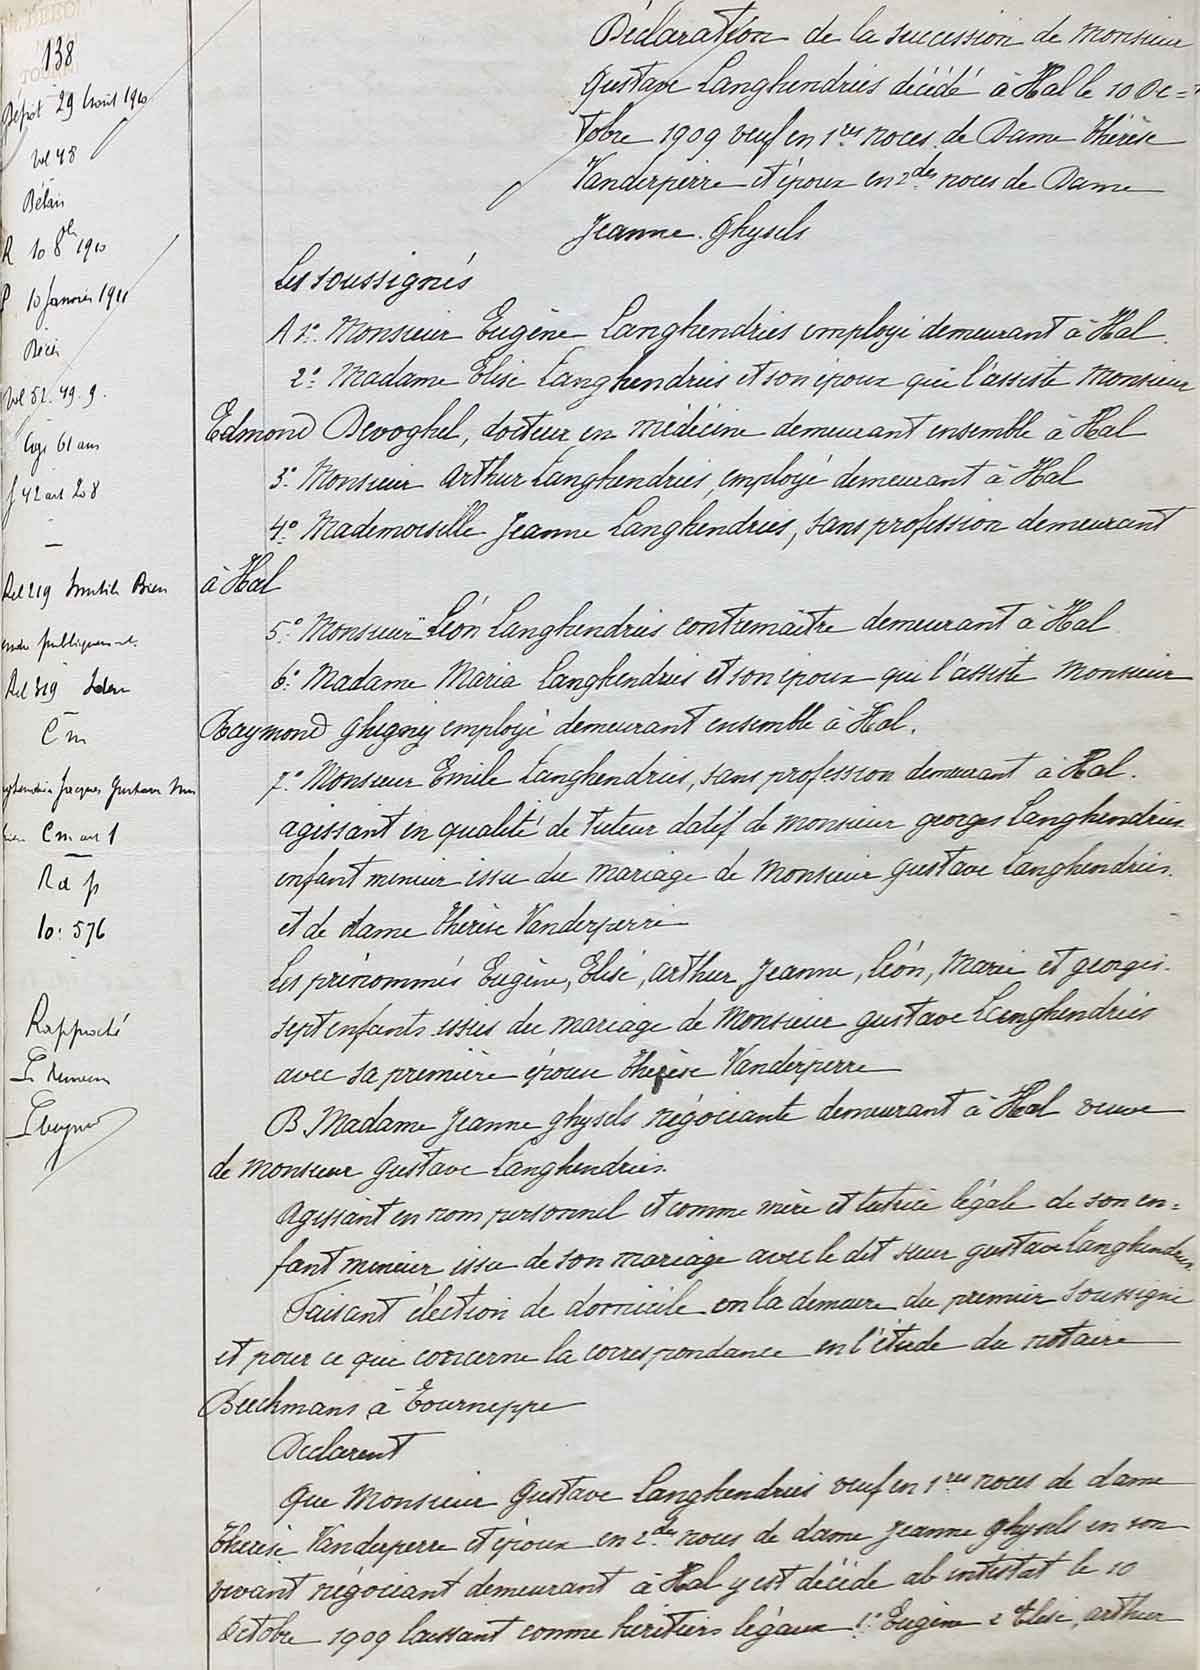 138
Dépôt 29 Août 1910
Vol 48
Délais
R 10 8bre 1910
P 10 Janvier 1911
Décès
Vol 52. 49. 9.
âgé 61 ans
f 42 art 208
Rel 219 Bien
publiquement
Rel 319 Idem
C m
Jacques Gustave
C m art 1
R d p
10: 576
Rapproché
Déclaration de la succession de Monsieur
Gustave Langhendries décédé à Hal le 10 Oc=
tobre 1909 veuf en 1res noces de Dame Thérèse
Vanderperre et époux en 2des noces de Dame
Jeanne Ghysels
Les soussignés
A 1° Monsieur Eugène Langhendries employé demeurant à Hal.
2° Madame Elise Langhendries et son époux qui l'assiste Monsieur
Edmond Devoghel, docteur en médecine demeurant ensemble à Hal
3° Monsieur Arthur Langhendries, employé demeurant à Hal
4° Mademoiselle Jeanne Langhendries, sans profession demeurant
à Hal
5° Monsieur Léon Langhendries contremaître demeurant à Hal
6° Madame Maria Langhendries et son époux qui l'assiste Monsieur
Raymond Ghigny employé demeurant ensemble à Hal.
7° Monsieur Emile Langhendries, sans profession demeurant à Hal.
agissant en qualité de tuteur datif de monsieur Georges Langhendries
enfant mineur issu du mariage de Monsieur Gustave Langhendries.
et de dame Thérèse Vanderperre
Les prénommés Eugène, Elise, Arthur, Jeanne, Léon, Marie et Georges.
sept enfants issus du mariage de Monsieur Gustave Langhendries
avec sa première épouse Thérèse Vanderperre
B. Madame Jeanne Ghysels négociante demeurant à Hal veuve
de monsieur Gustave Langhendries.
Agissant en nom personnel et comme mère et tutrice légale de son en=
fant mineur issu de son mariage avec le dit sieur Gustave Langhendries
Faisant élection de domicile en la demeure du premier soussigné
et pour ce qui concerne la correspondance en l'étude du notaire
Beeckmans à Tourneppe
Déclarent
Que Monsieur Gustave Langhendries veuf en 1res noces de dame
Thérèse Vanderperre et époux en 2des noces de dame Jeanne Ghysels en son
vivant négociant demeurant à Hal y est décédé ab intestat le 10
Octobre 1909 laissant comme héritiers légaux 1° Eugène 2 Elise, Arthur